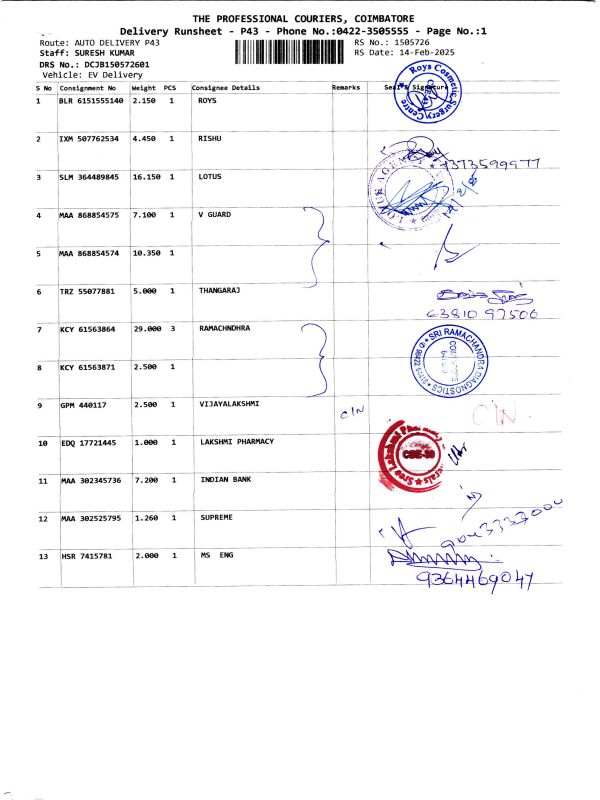 THE PROFESSIONAL COURIERS, COIMBATORE
Delivery Runsheet - P43 - Phone No.:0422-3505555 - Page No.:1
Route: AUTO DELIVERY P43 RS No.: 1505726
Staff: SURESH KUMAR RS Date: 14-Feb-2025
DRS No.: DCJB150572601
Vehicle: EV Delivery
S No Consignment No Weight PCS Consignee Details Remarks Seal & Signature
1 BLR 6151555140 2.150 1 ROYS
Roys Cosmetic Surgery Centre
2 IXM 507762534 4.450 1 RISHU
3 SLM 364489845 16.150 1 LOTUS
4 MAA 868854575 7.100 1 V GUARD
5 MAA 868854574 10.350 1
6 TRZ 55077881 5.000 1 THANGARAJ
63810 97506
7 KCY 61563864 29.000 3 RAMACHNDHRA
SRI RAMACHANDRA DIAGNOSTICS
8 KCY 61563871 2.500 1
9 GPM 440117 2.500 1 VIJAYALAKSHMI C/N C/N
10 EDQ 17721445 1.000 1 LAKSHMI PHARMACY
Sree Lakshmi
11 MAA 302345736 7.200 1 INDIAN BANK
12 MAA 302525795 1.260 1 SUPREME
13 HSR 7415781 2.000 1 MS ENG
9364469047